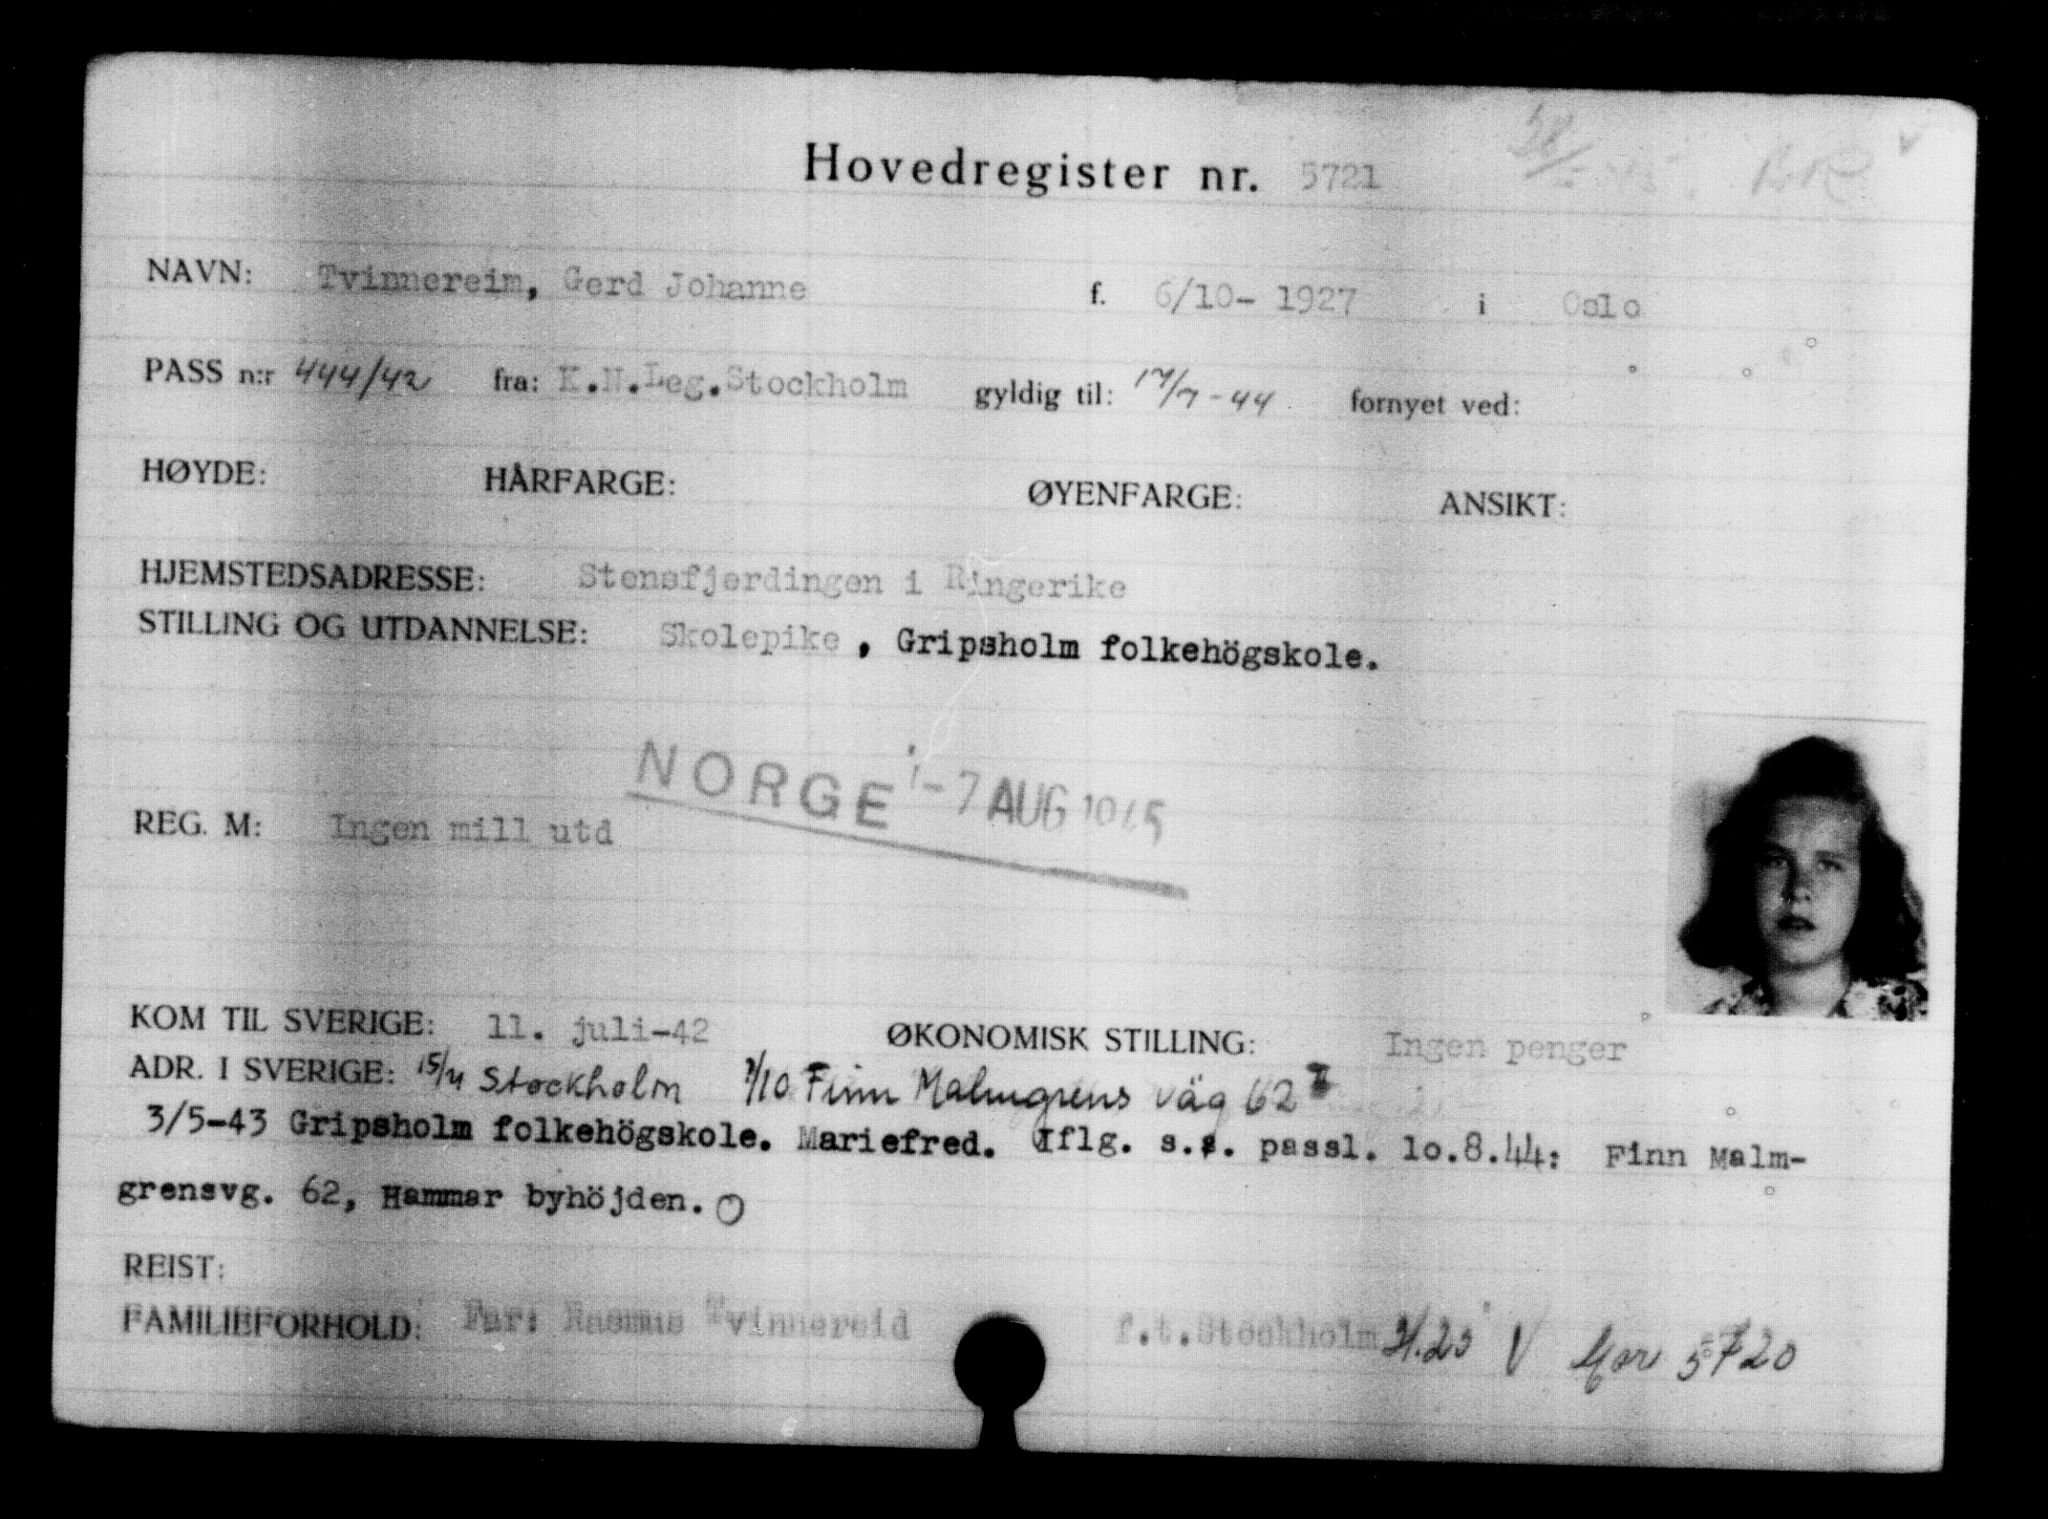 Hovedregister nr. 5721
NAVN: Tvinnereim, Gerd Johanne f. 6/10-1927 i Oslo
PASS n:r 444/42 fra: K.N.Leg.Stockholm gyldig til: 17/7-44 fornyet ved:
HØYDE: HÅRFARGE: ØYENFARGE: ANSIKT:
HJEMSTEDSADRESSE: Stensfjerdingen i Ringerike
STILLING OG UTDANNELSE: Skolepike, Gripsholm folkehögskole.
NORGE -7 AUG 1945
REG. M: Ingen mill utd
KOM TIL SVERIGE: 11. juli-42 ØKONOMISK STILLING: Ingen penger
ADR. I SVERIGE: Stockholm 7/10 Finn Malmgrens väg 62
3/5-43 Gripsholm folkehögskole. Mariefred. Iflg. s.s. passl. 10.8.44: Finn Malm-
grensvg. 62, Hammar byhöjden.
REIST:
FAMILIEFORHOLD: Far: Rasmus Tvinnereid f.t.Stockholm V Mor 5720